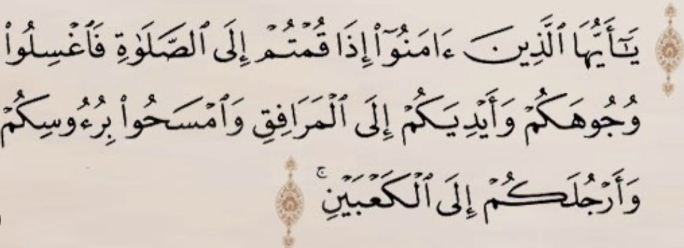 يَـٰٓأَيُّهَا ٱلَّذِينَ ءَامَنُوٓا۟ إِذَا قُمْتُمْ إِلَى ٱلصَّلَوٰةِ فَٱغْسِلُوا۟
وُجُوهَكُمْ وَأَيْدِيَكُمْ إِلَى ٱلْمَرَافِقِ وَٱمْسَحُوا۟ بِرُءُوسِكُمْ
وَأَرْجُلَكُمْ إِلَى ٱلْكَعْبَيْنِ ۚ